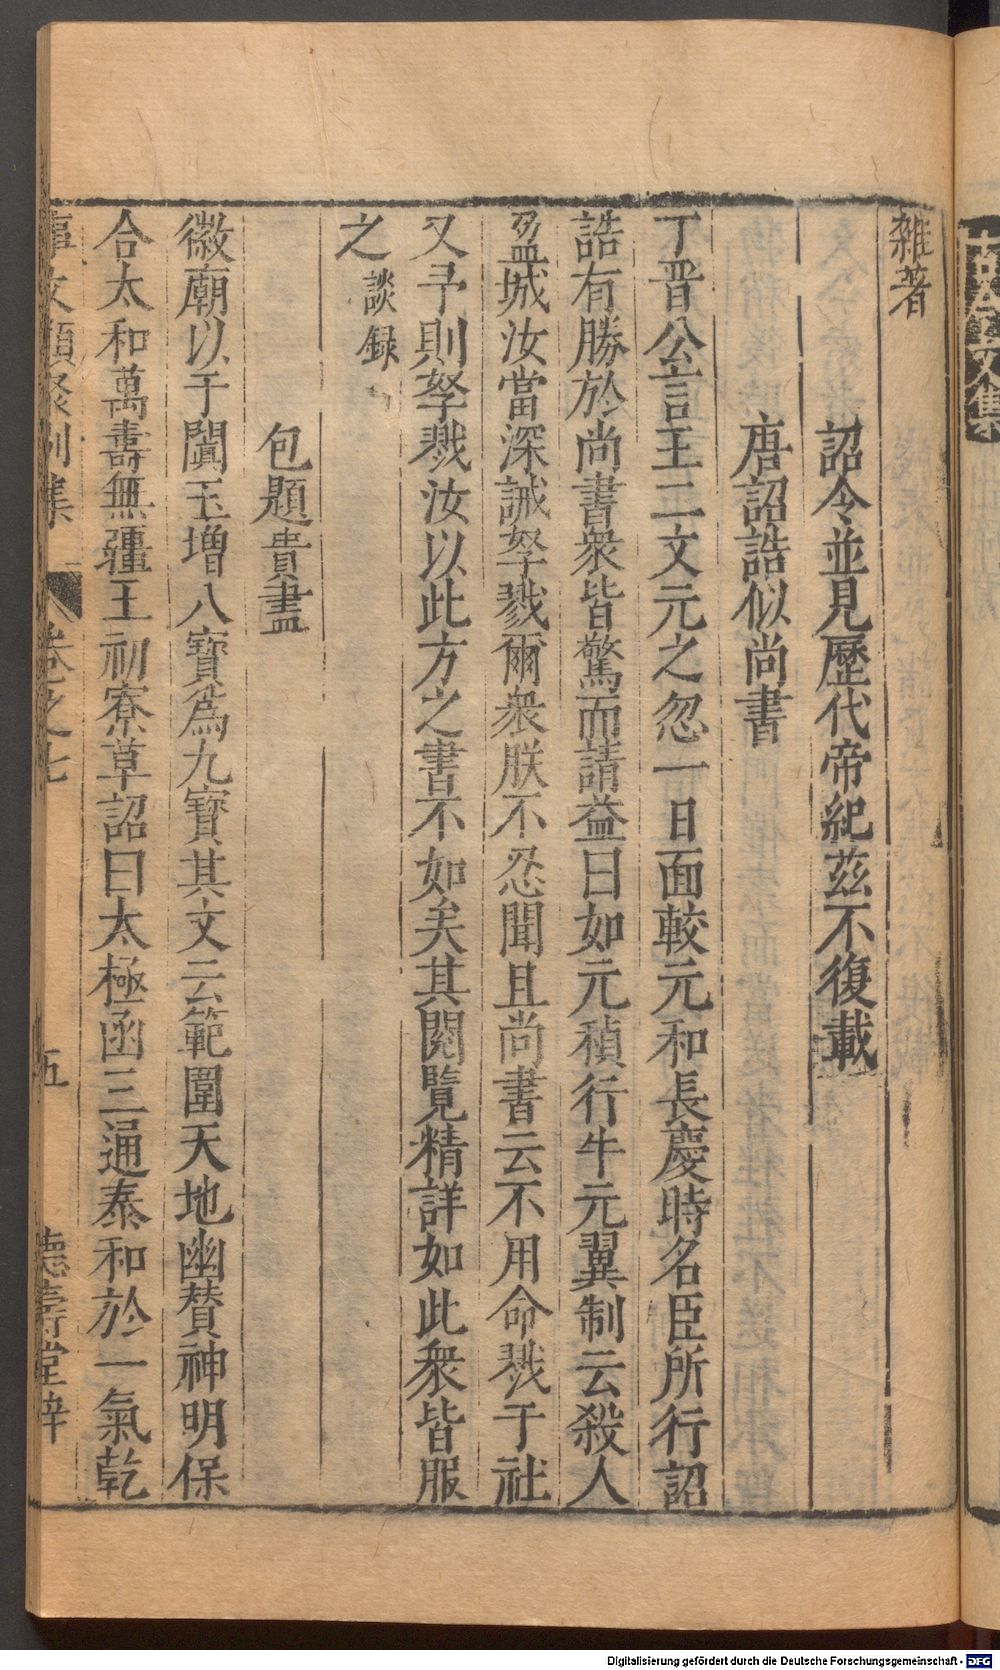 雜著
詔令並見歷代帝紀茲不復載
唐詔誥似尚書
丁晋公言王二文元之忽一日面較元和長慶時名臣所行詔
誥有勝於尚書衆皆驚而請益曰如元稹行牛元翼制云殺人
盈城汝當深誡孥戮爾衆朕不忍聞且尚書云不用命戮于社
又予則孥戮汝以此方之書不如矣其閱覽精詳如此衆皆服
之 談録
包題貴盡
徽廟以于闐玉增八寶爲九寶其文云範圍天地幽賛神明保
合太和萬壽無疆王初寮草詔曰太極函三通泰和於一氣乾
事文類聚別集 卷之七 五 德壽堂梓
Digitalisierung gefördert durch die Deutsche Forschungsgemeinschaft - DFG